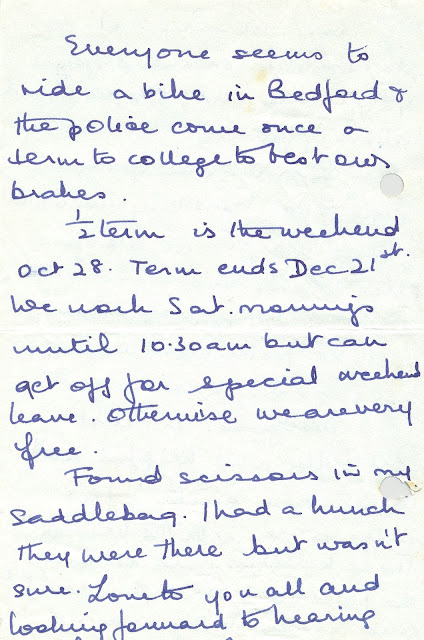 Everyone seems to
ride a bike in Bedford &
the police come once a
term to college to test our
brakes.
½ term is the weekend
Oct 28. Term ends Dec 21st.
We work Sat. mornings
until 10.30am but can
get off for special weekend
leave. Otherwise we are very
free.
Found scissors in my
saddlebag. I had a hunch
they were there but wasn't
sure. Love to you all and
looking forward to hearing